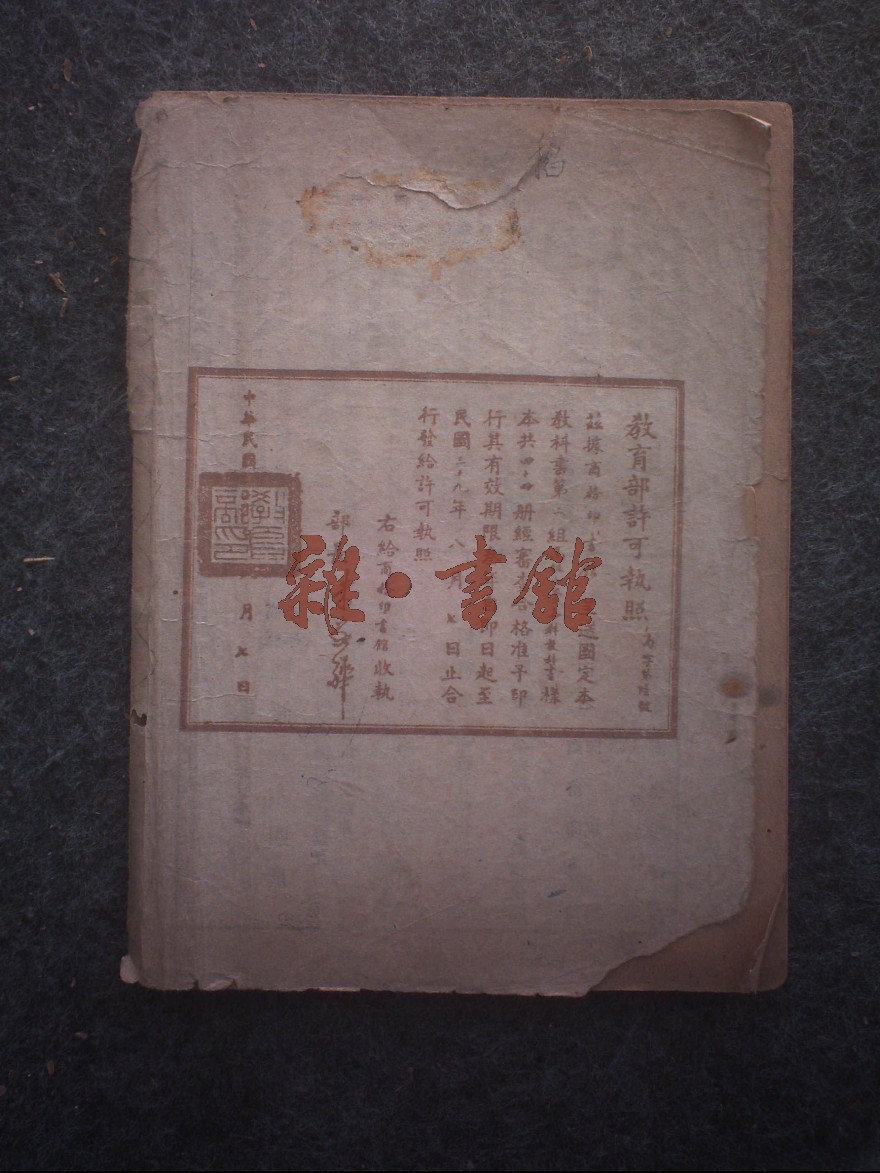 教育部許可執照
茲據商務印書 國定本
教科書第 組 樣
本共四十四册經審 合格准予印
行其有效期限 即日起至
民國三十九年八月七日止合
行發給許可執照
右給商務印書館收執
部
中華民國 月七日
雜·書館